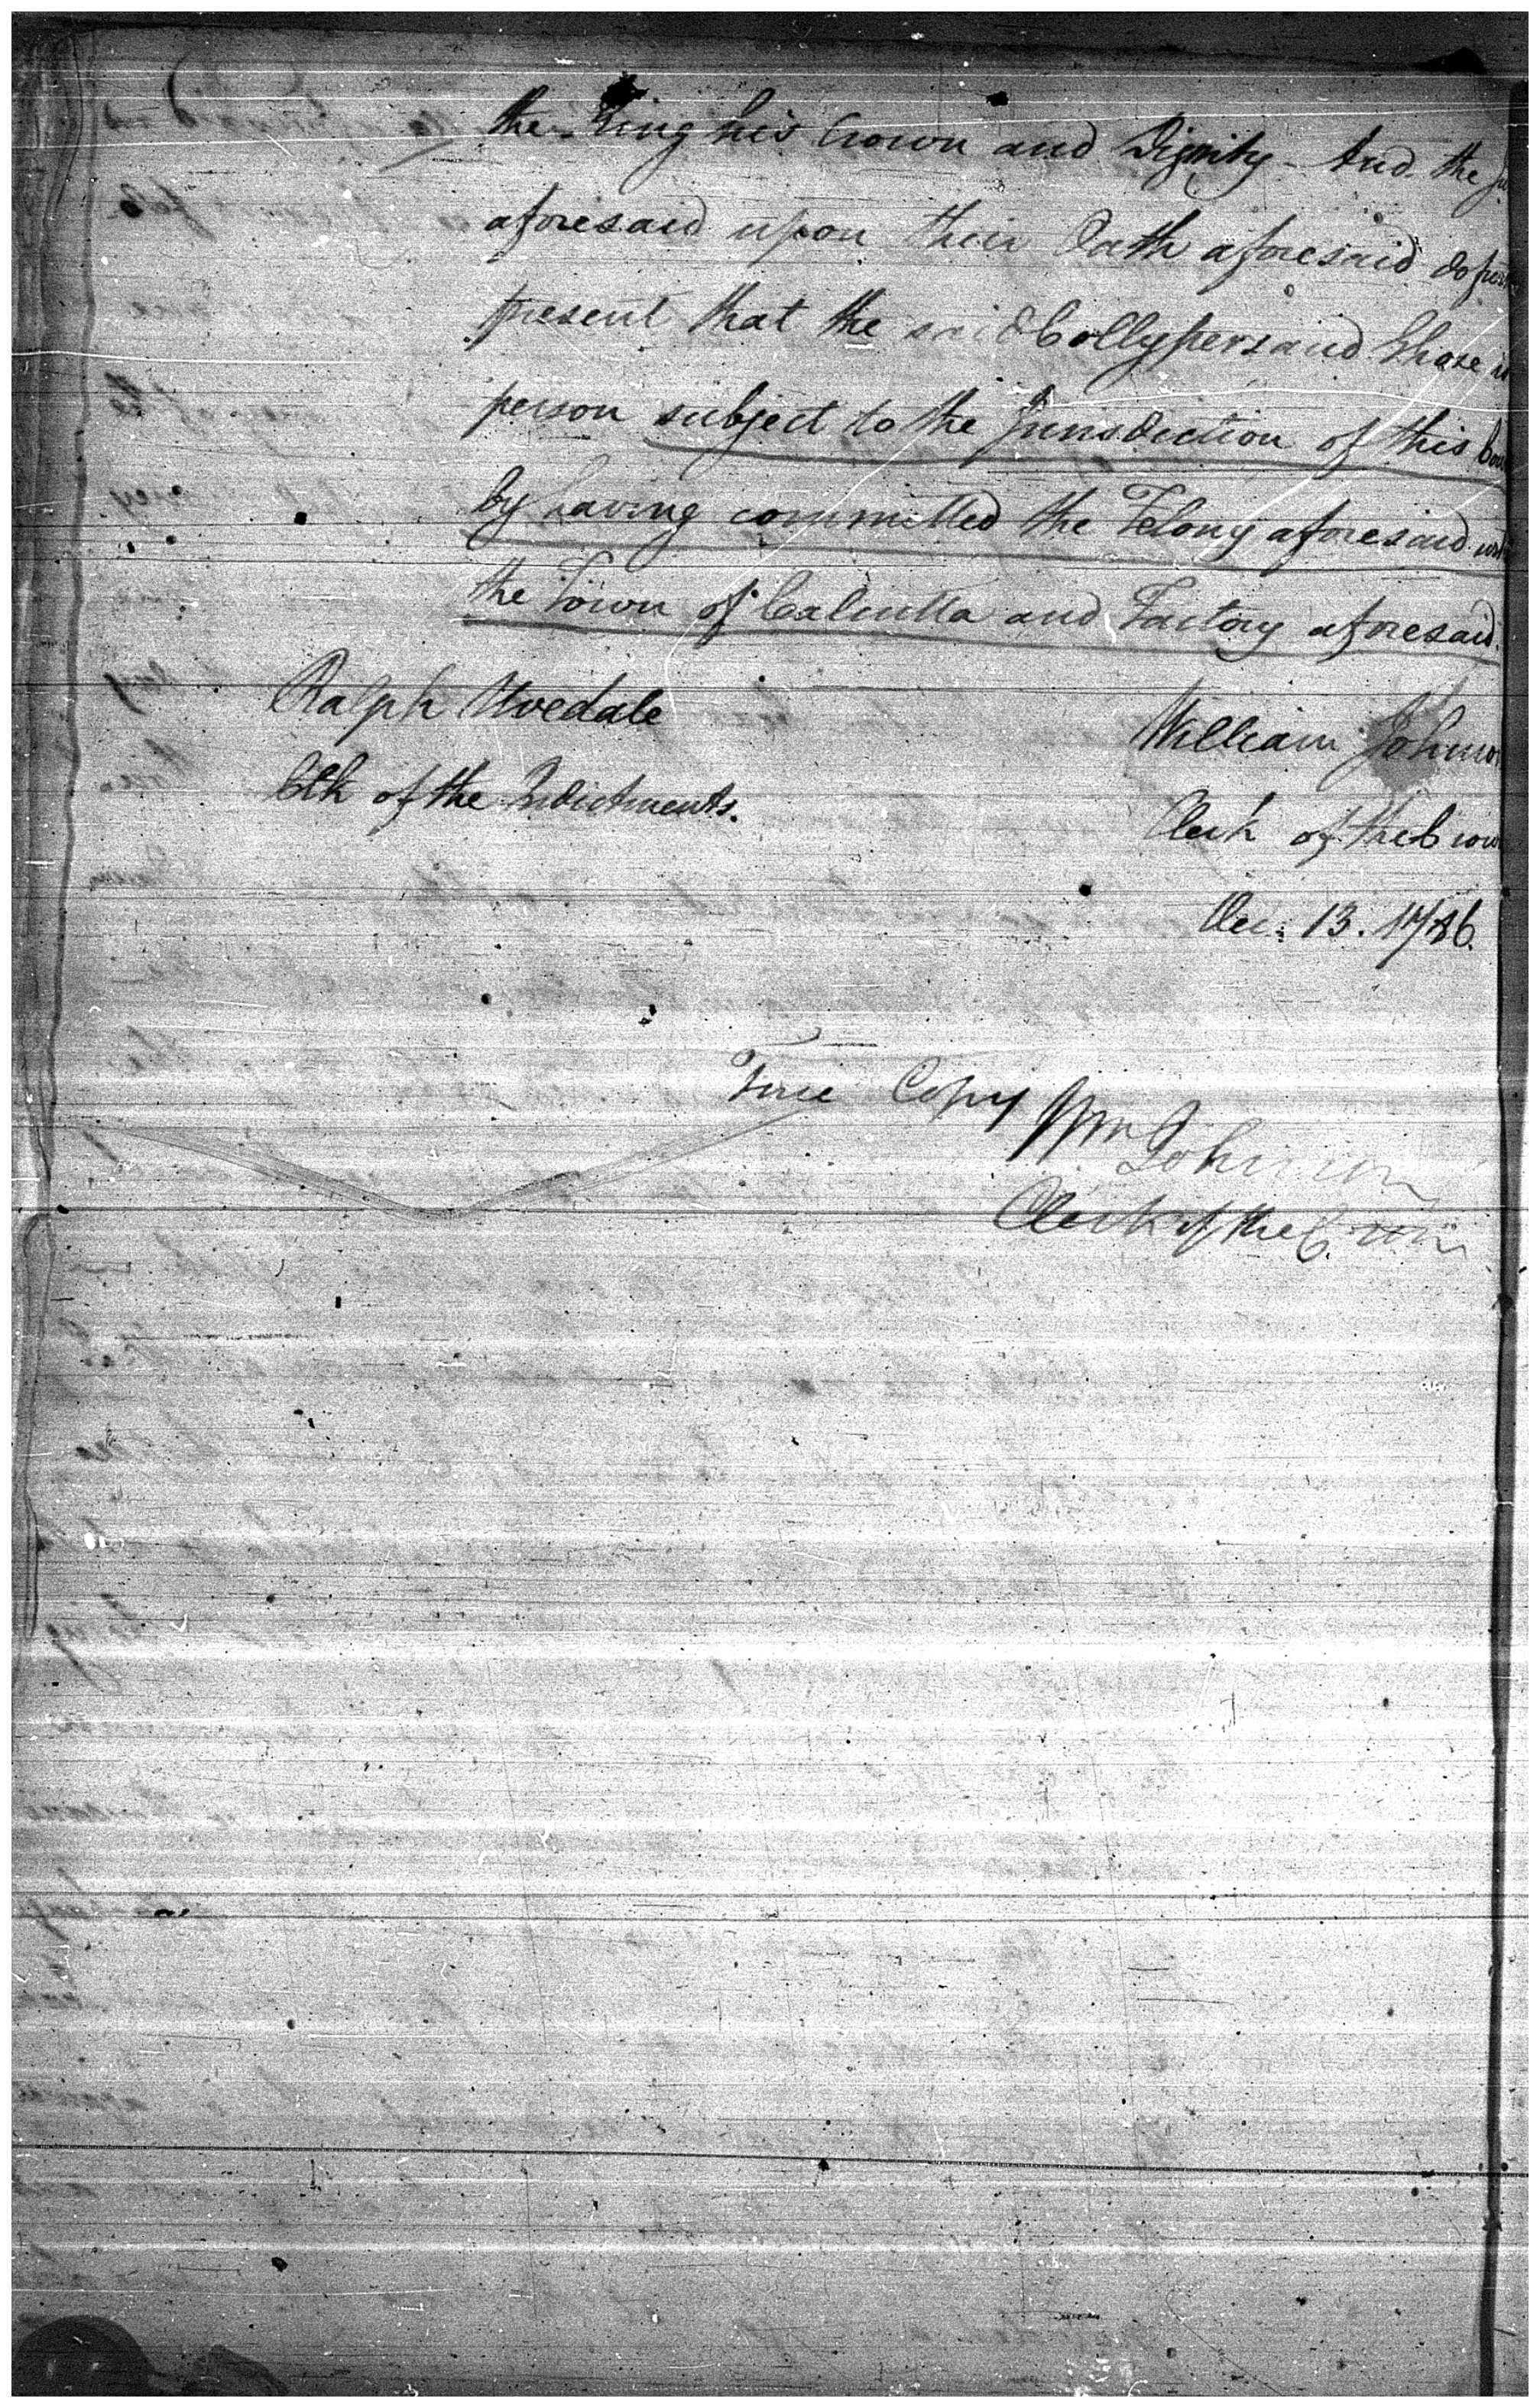 the King his Crown and Dignity - And the
aforesaid upon their Oath aforesaid do
present that the said Collypersaud Ghose
person subject to the Jurisdiction of this
by having committed the Felony aforesaid
the Town of Calcutta and Factory aforesaid.
Ralph Uvedale
William Johnso
Clk of the Indictments.
Clerk of the Crow
Dec. 13. 1786.
True Copy
Wm Johnson
Clerk of the Crown